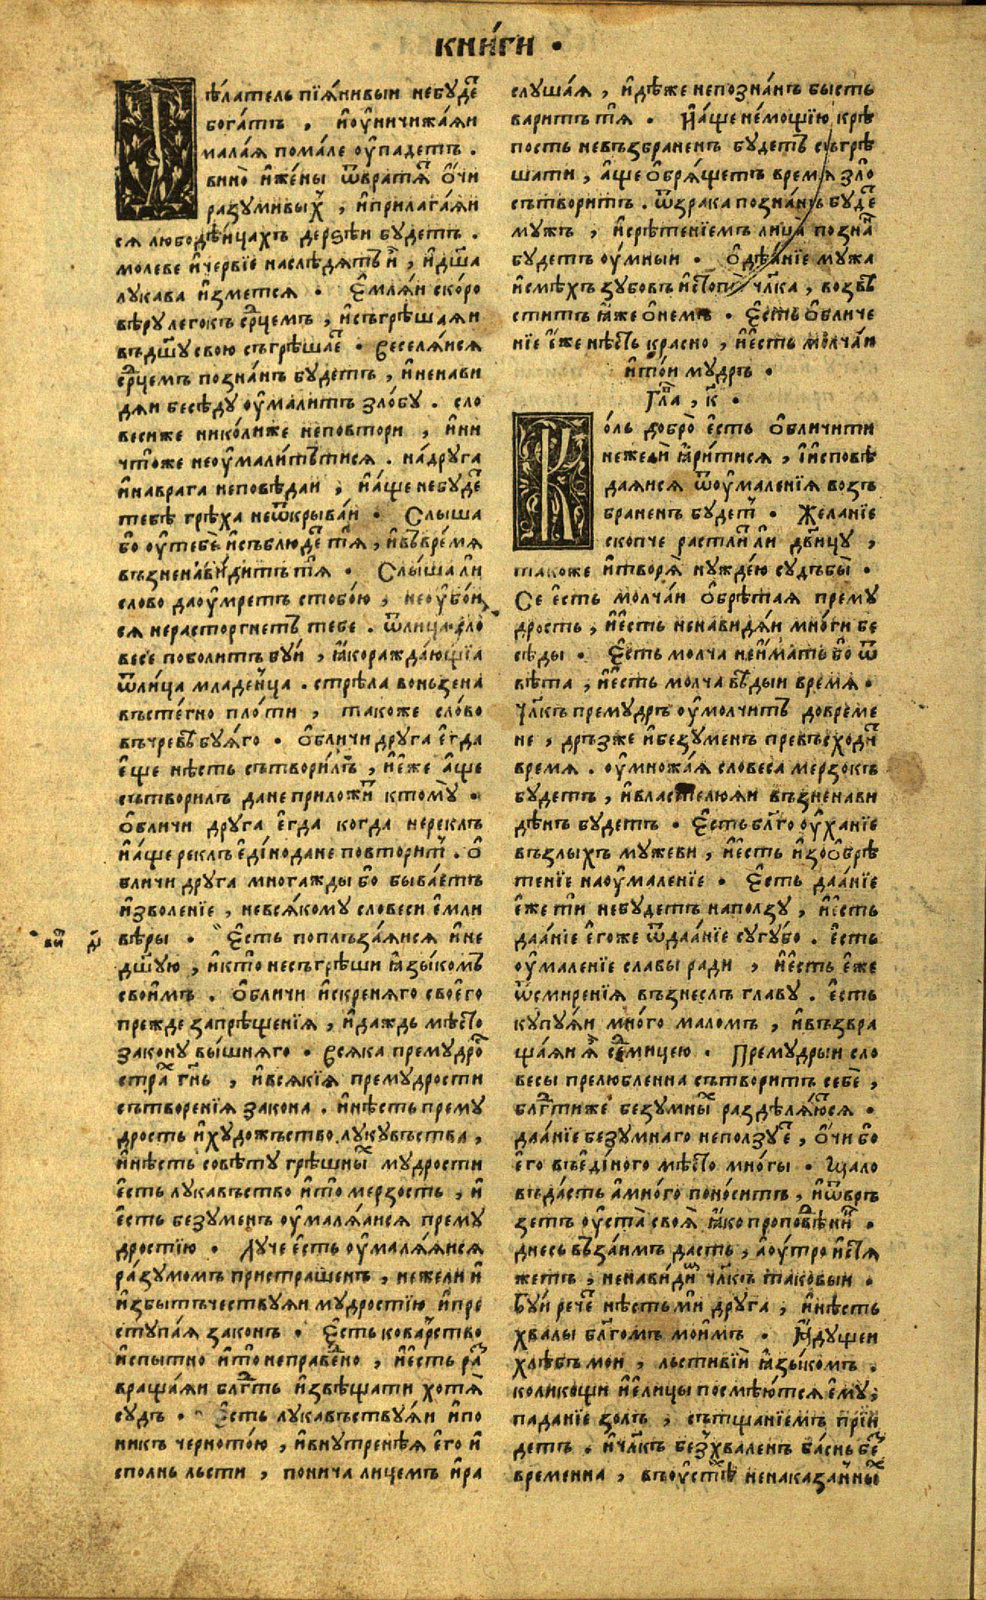 кни́ги .
Дѣ́латель пїѧ́нивыи небуде҇
бога́тъ , и҆оу҆ничижа́ѧи
мала́ѧ пома́ле оу҆падетъ .
вино̀ и҆же́ны ѿвратѧ҇ ѻ҆́чи
разумивых̾ , и҆прилага́ѧи
сѧ любодѣ́ицахъ дерзѣи будетъ .
молеве и҆че́рвїе наслѣ́дѧтъ и҆̀ , и҆дш҃а
лука́ва и҆зметсѧ . Є҆млѧи ско́ро
вѣ́ру легокъ ср҃цемъ , и҆съгрѣша́ѧи
въдш҃у свою съгрѣша́е҇ . Веселѧ́исѧ
ср҃цемъ позна́нъ будетъ , и҆ненави
дѧи бесѣ́ду оу҆малитъ зло́бу . сло
весиже нико́лиже неповтори , и҆ни
что́же неоу҆мали́тътисѧ . на́друга
и҆наврага неповѣ́даи , и҆а҆́ще небуде҇
тебѣ̀ грѣха неѿкрыва́и . Слыша
бо оу҆тебѐ и҆съблюде҇ тѧ̀ , и҆въвре́мѧ
възненави́дитъ тѧ̀ . Слы́ша ли
слово даоу҆мретъ стобо́ю , неоу҆бо́и
сѧ нерасто́ргнетъ тебе . ѿлица̀ сло
весѐ поболитъ буи , ꙗ҆кораж́да́ющїа
ѿлица младе́нца . стрѣла воньзена̀
въсте́гно пло́ти , тако́же сло́во
въчре́вѣ буѧ́го . Ѻ҆бличи друга е҆гда
е҆ще нѣ́сть сътвори́лъ , и҆е҆́же а҆́ще
сътворилъ дане прилож́и ктому̀ .
Ѻ҆бличи друга е҆гда когда нереклъ
и҆а҆́ще реклъ е҆ди́но дане повторит҇ . Ѻ҆
бличи друга мно́гажды бо быва́етъ
и҆зволе́нїе , невсѧ́кому словеси е҆мли
вѣ́ры . Є҆сть поплъза́ѧисѧ и҆не
дш҃ею , и҆кто̀ несъгрѣши ꙗ҆зы́комъ
свои҆мъ . Ѻ҆бличи и҆скренѧго своего
прежде запрѣще́нїѧ , и҆даждь мѣ́сто
закону вы́шнѧго . Всѧка премудро҇
стра́х гн҃ь , и҆всѧкїѧ премудрости
сътворенїѧ закона . и҆нѣсть прему
дрость и҆худо́жъство лукувъства ,
и҆нѣ́сть совѣ́ту грѣшных̾ мудрости
е҆сть лука́въство и҆то̀ мерзость , и҆
е҆сть безуменъ оу҆малѧ́ѧисѧ прему
дростїю . Луче е҆сть оу҆малѧ́ѧисѧ
ра́зумомъ пристра́шенъ , нежели и҆
и҆збыточествуѧи мудростїю и҆пре
ступа́ѧ законъ . Є҆сть кова́рство
и҆спытно и҆то̀ неправе́дно , и҆е҆сть ра҇
враща́ѧи блг҃ть и҆звѣщати хотѧ̀
судъ . Є҆сть лука́въствуѧи и҆по
никъ чернотою , и҆внутренѣѧ е҆го и҆
сполнь льсти , понича лицемъ и҆ра
вїи҇ д҃і
слуша́ѧ , и҆дѣ́же непозна́нъ бысть
варитъ тѧ̀ . И҆а҆́ще не́мощїю крѣ
пость невъзбраненъ будетъ съгрѣ
шати , а҆́ще ѻ҆брѧщетъ времѧ зло̀
сътворитъ . ѿзрака позна́нъ буде҇
мужъ , и҆срѣ́тенїемъ лица̀ позна́
будетъ оу҆мныи . Ѻ҆дѣ́нїе мужа
и҆смѣхъ зубовъ и҆стопы̀ чл҃ка , возвѣ
ститъ ꙗ҆́же ѻ҆не́мъ . Є҆сть ѻ҆бличе
нїе е҆́же нѣ́сть кра́сно , и҆е҆сть молча́и
и҆то́и мудръ .
Гла҇ , к҃ .
Коль добро̀ е҆сть ѻ҆бличити
нежелѝ ꙗ҆ри́тисѧ , и҆и҆сповѣ
даѧисѧ ѿоу҆мале́нїѧ возъ
браненъ будет҇ . Жела́нїе
скопче растли́ ли дв҃ицу ,
тако́же и҆творѧ̀ нуж́дею судьбы̀ .
Се е҆сть молча́и ѻ҆брѣ́таѧ прему
дрость , и҆е҆сть ненавидѧ́и мно́ги бе
сѣ́ды . Є҆сть молча неи҆́мать бо ѿ
вѣ́та , и҆е҆сть молча вѣ́дыи времѧ .
Чл҃къ прему́дръ оу҆молчитъ довре́ме
не , дръзже и҆безуменъ превъсходи҇
времѧ . оу҆множа́ѧ словеса мерзокъ
будетъ , и҆властелюѧи възненави
дѣнъ будетъ . Є҆сть благо оу҆ха́нїе
възлыхъ му́жеви , и҆е҆сть и҆зоѻ҆брѣ
тенїе наоу҆маленїе . Є҆сть даа́нїе
е҆́же ти небудетъ наползу , и҆е҆сть
даа́нїе е҆го́же ѿдаа́нїе сугубо . е҆сть
оу҆маленїе сла́вы ра́ди , и҆е҆сть е҆́же
ѿсмиренїѧ възнеслъ главу . е҆сть
купуѧи мно́го маломъ , и҆възвра
ща́ѧи ѧ҆̀ седмицею . Премудрыи сло
весы прелюбленна сътворитъ себѐ ,
блг҃тиже безумных̾ раздѣлѧ́ютсѧ .
даа́нїе безумнаго неползуе҇ , ѻ҆́чи бо
е҆го въе҆ди́ного мѣсто мно́гы . Мало
въда́сть а҆мно́го поно́ситъ , и҆ѿвръ
зетъ оу҆ста̀ своѧ̀ ꙗ҆́ко проповѣ́никъ .
днесь въза́имъ дастъ , а҆оу҆тро и҆стѧ
жетъ , ненави́димъ чл҃къ таковыи .
Буи рече҇ нѣ́сть ми дру́га , и҆нѣсть
хвалы благомъ мои́мъ . Ꙗ҆душеи
хлѣ́бъ мои , льстивїи ꙗ҆зы́комъ .
коликощи и҆е҆лицы посмѣю́тсѧ е҆му̀ ,
паданїе золъ , сътща́нїемъ прїи
детъ . и҆чл҃къ безхва́ленъ ба́снь бе҇
временна , въоу҆стѣх̾ ненаказа́нных̾